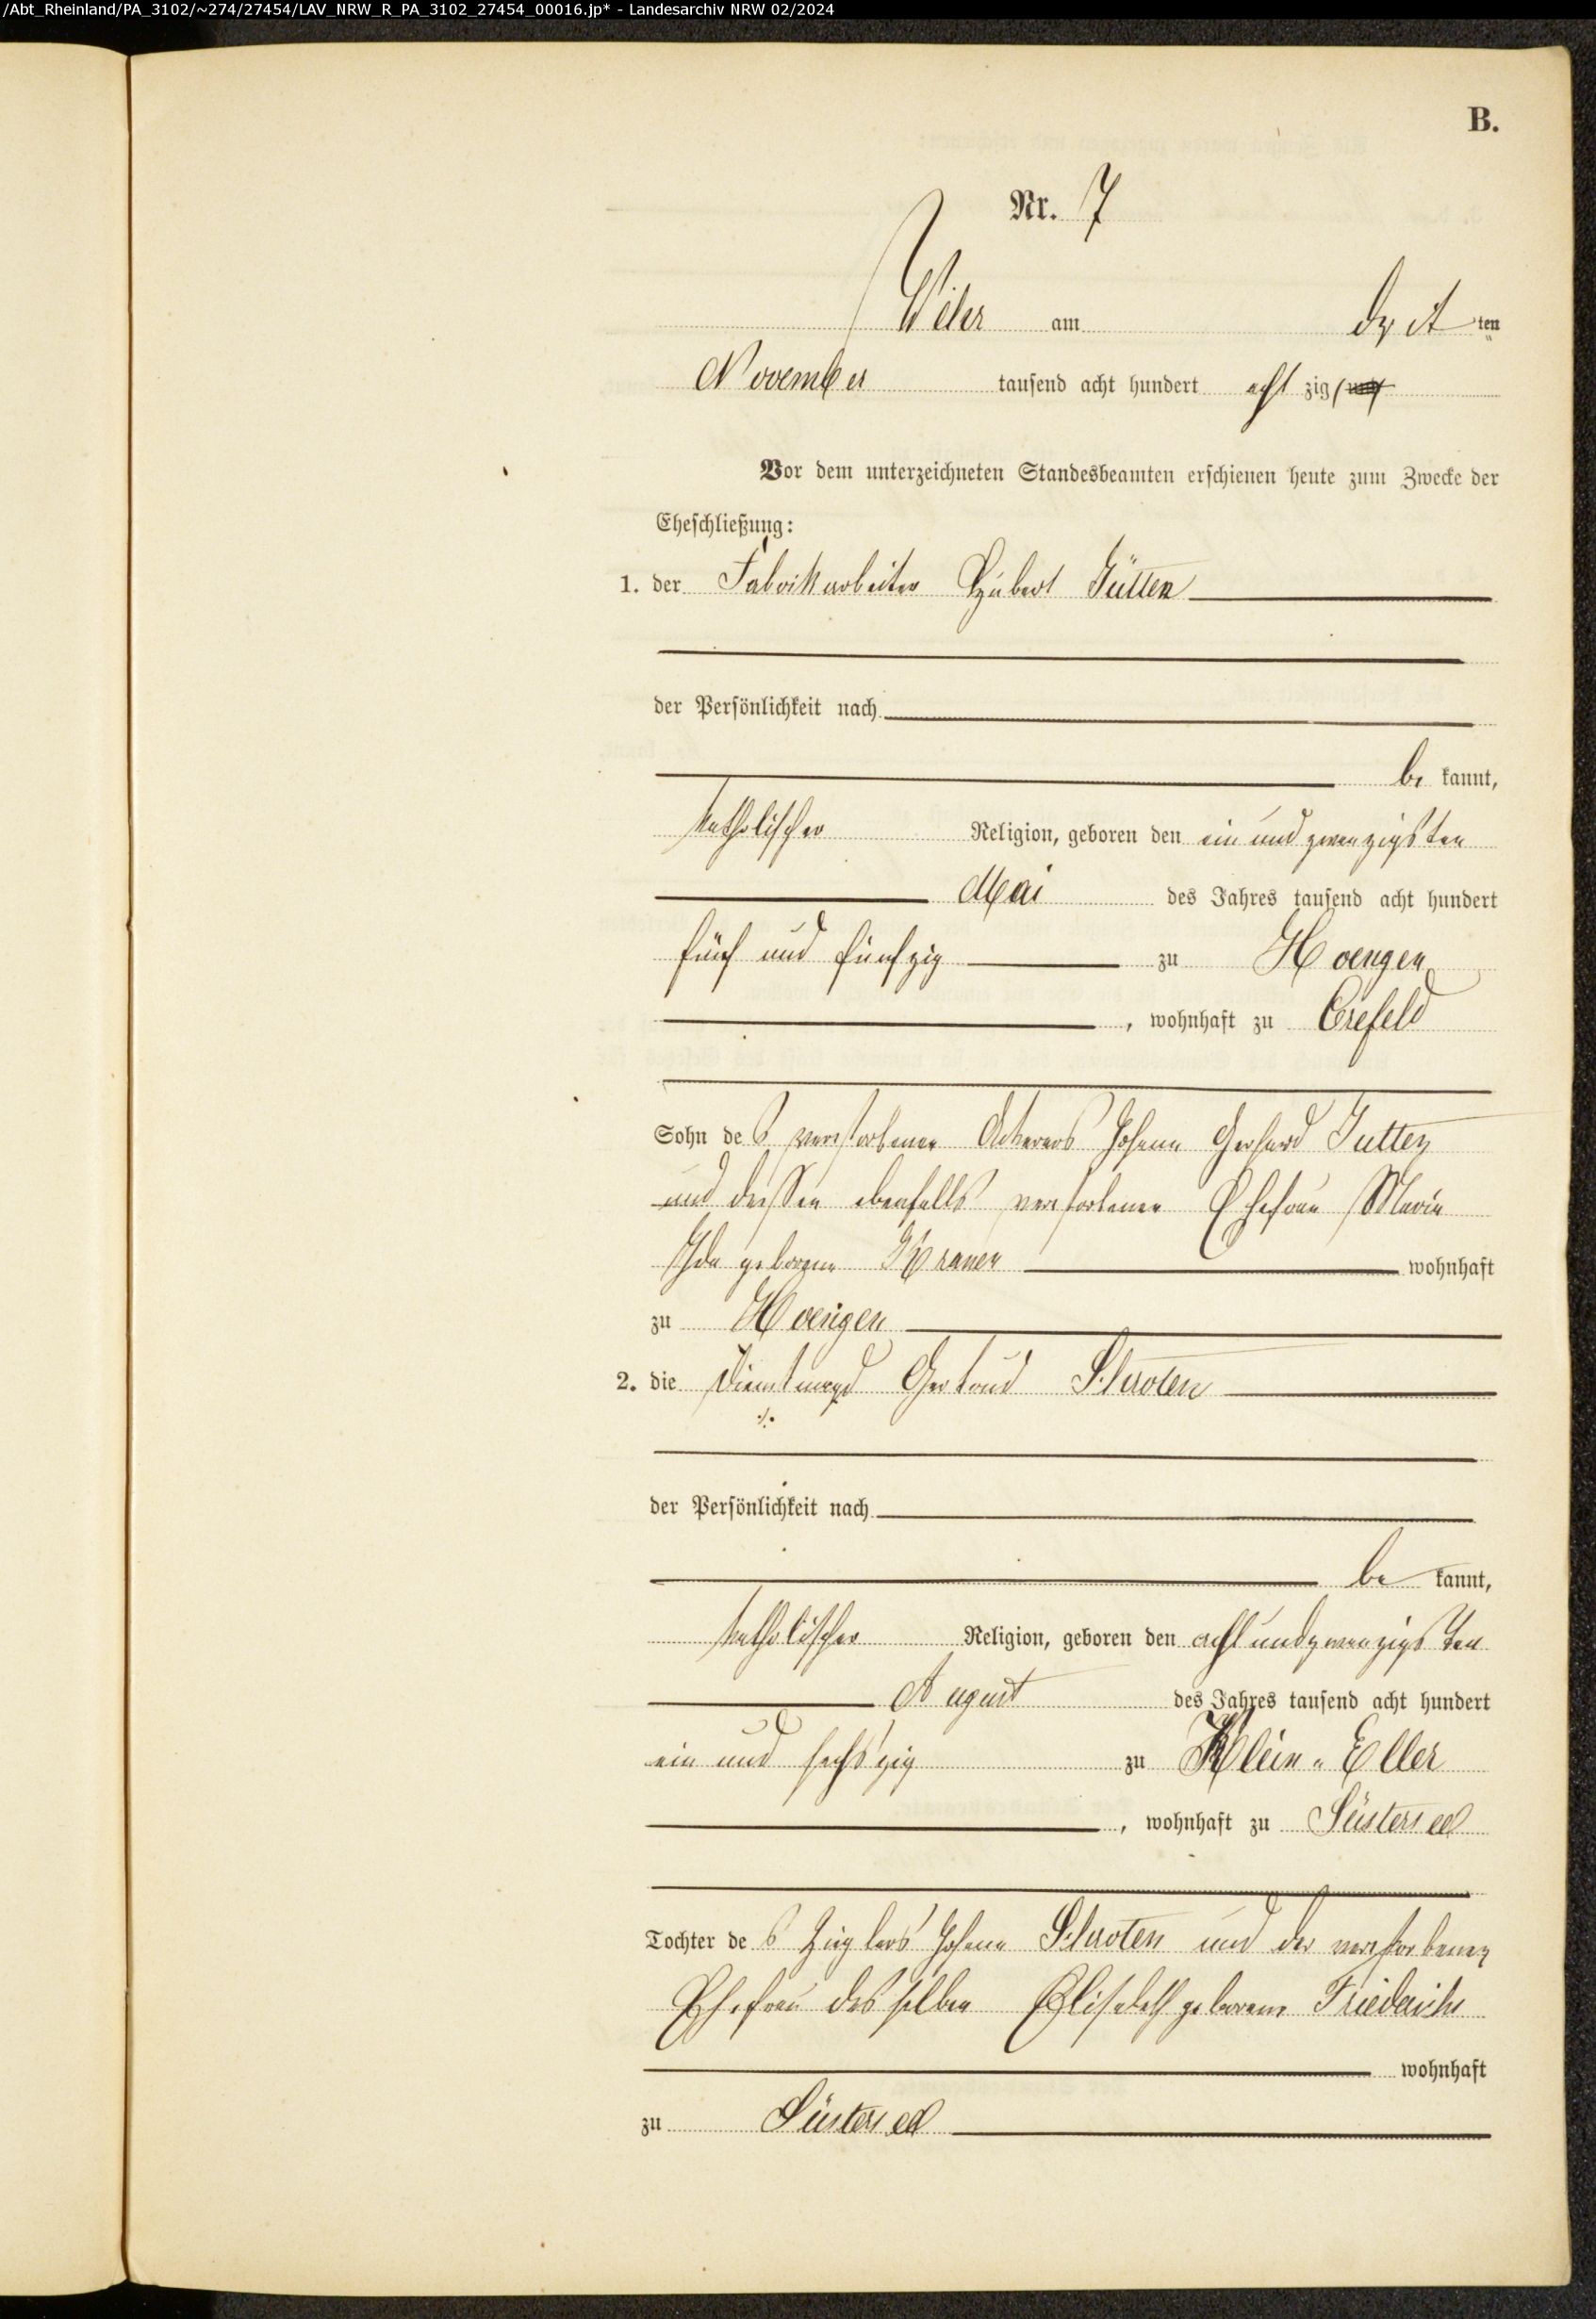 /Abt_Rheinland/PA_3102/~274/27454/LAV_NRW_R_PA_3102_27454_00016.jp* - Landesarchiv NRW 02/2024
B.
Nr. 7
am dritten
November tausend acht hundert achtzig
Vor dem unterzeichneten Standesbeamten erschienen heute zum Zwecke der
Eheschließung:
1. der Fabrikarbeiter Hubert Jütten
der Persönlichkeit nach
be kannt,
katholischer Religion, geboren den ein und zwanzigsten
Mai des Jahres tausend acht hundert
fünf und fünfzig zu Hoengen
, wohnhaft zu Crefeld
Sohn des verstorbenen Ackerers Johann Gerhard Jutten
und dessen ebenfalls verstorbener Ehefrau Maria
Ida geborene wohnhaft
zu Hoengen
2. die Dienstmagd Gertrud
der Persönlichkeit nach
be kannt,
katholischer Religion, geboren den acht und zwanzigsten
August des Jahres tausend acht hundert
ein und sechszig zu Klein-Eller
, wohnhaft zu Süsterseel
Tochter des Zieglers Johann und der verstorbenen
Ehefrau desselben Elisabeth geborene Friederichs
wohnhaft
zu Süsterseel